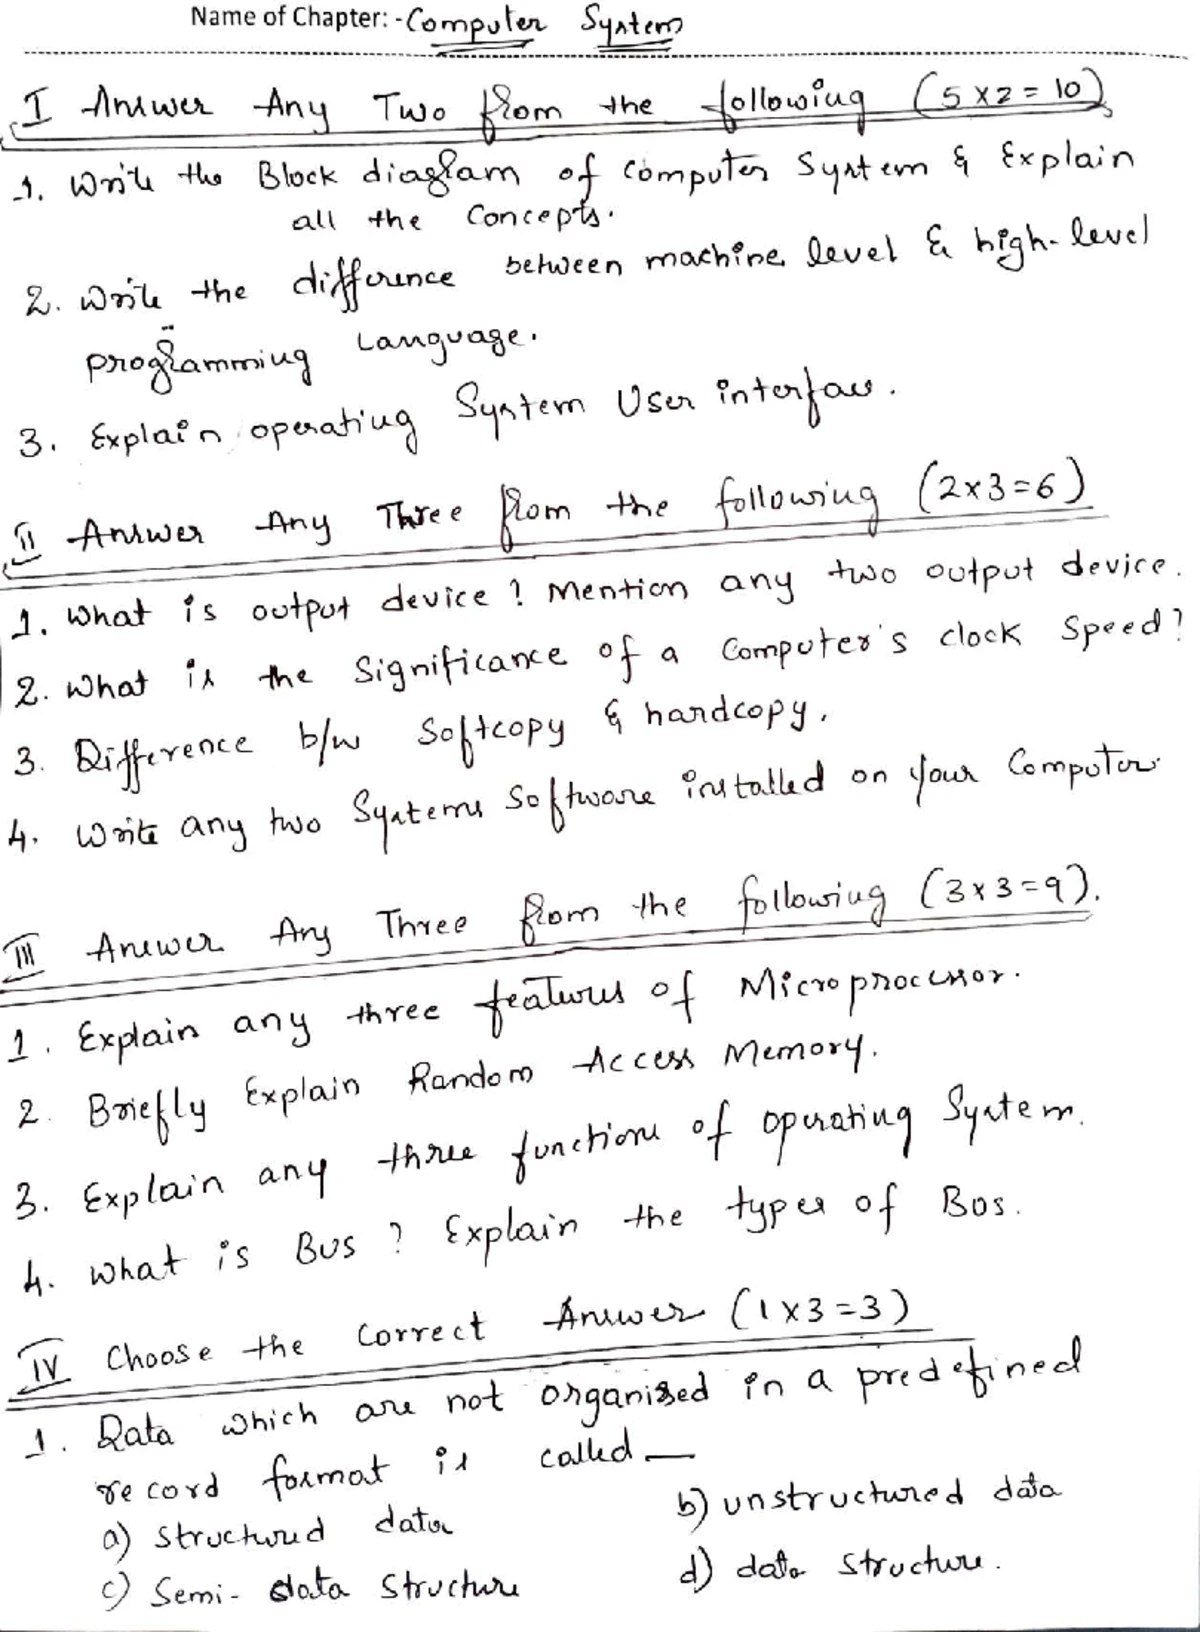 Name of Chapter: - Computer System
I Answer Any Two from the following (5x2=10)
1. Write the Block diagram of Computer System & Explain
all the Concepts.
2. Write the difference between machine level & high-level
programming Language.
3. Explain operating System User interface.
II Answer Any Three from the following (2x3=6)
1. What is output device? Mention any two output device.
2. What is the Significance of a Computer's clock Speed?
3. Difference b/w Softcopy & hardcopy.
4. Write any two Systems Software installed on your Computer.
III Answer Any Three from the following (3x3=9).
1. Explain any three features of Microprocessor.
2. Briefly Explain Random Access Memory.
3. Explain any three functions of operating System.
4. What is Bus? Explain the types of Bus.
IV Choose the Correct Answer (1x3=3)
1. Data which are not organised in a predefined
record format is called —
a) Structured data b) unstructured data
c) Semi-data Structure d) data structure.